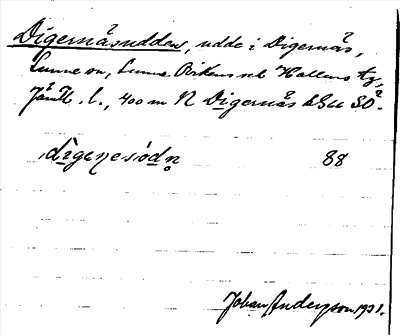 Digernäsudden, udde i Digernäs,
Sunne sn, Sunne, Oviken och Hallens tg,
Jämtl. l., 400 m N Digernäs bGu SO.
digenesòdn̥ 88
Johan Anderson 1931.